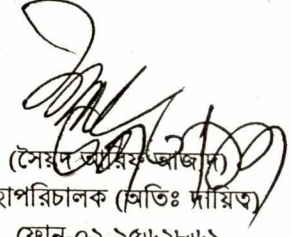 (সৈয়দ আরিফ আজাদ)
হাপরিচালক (অতিঃ দায়িত্ব)
ফোন ০২